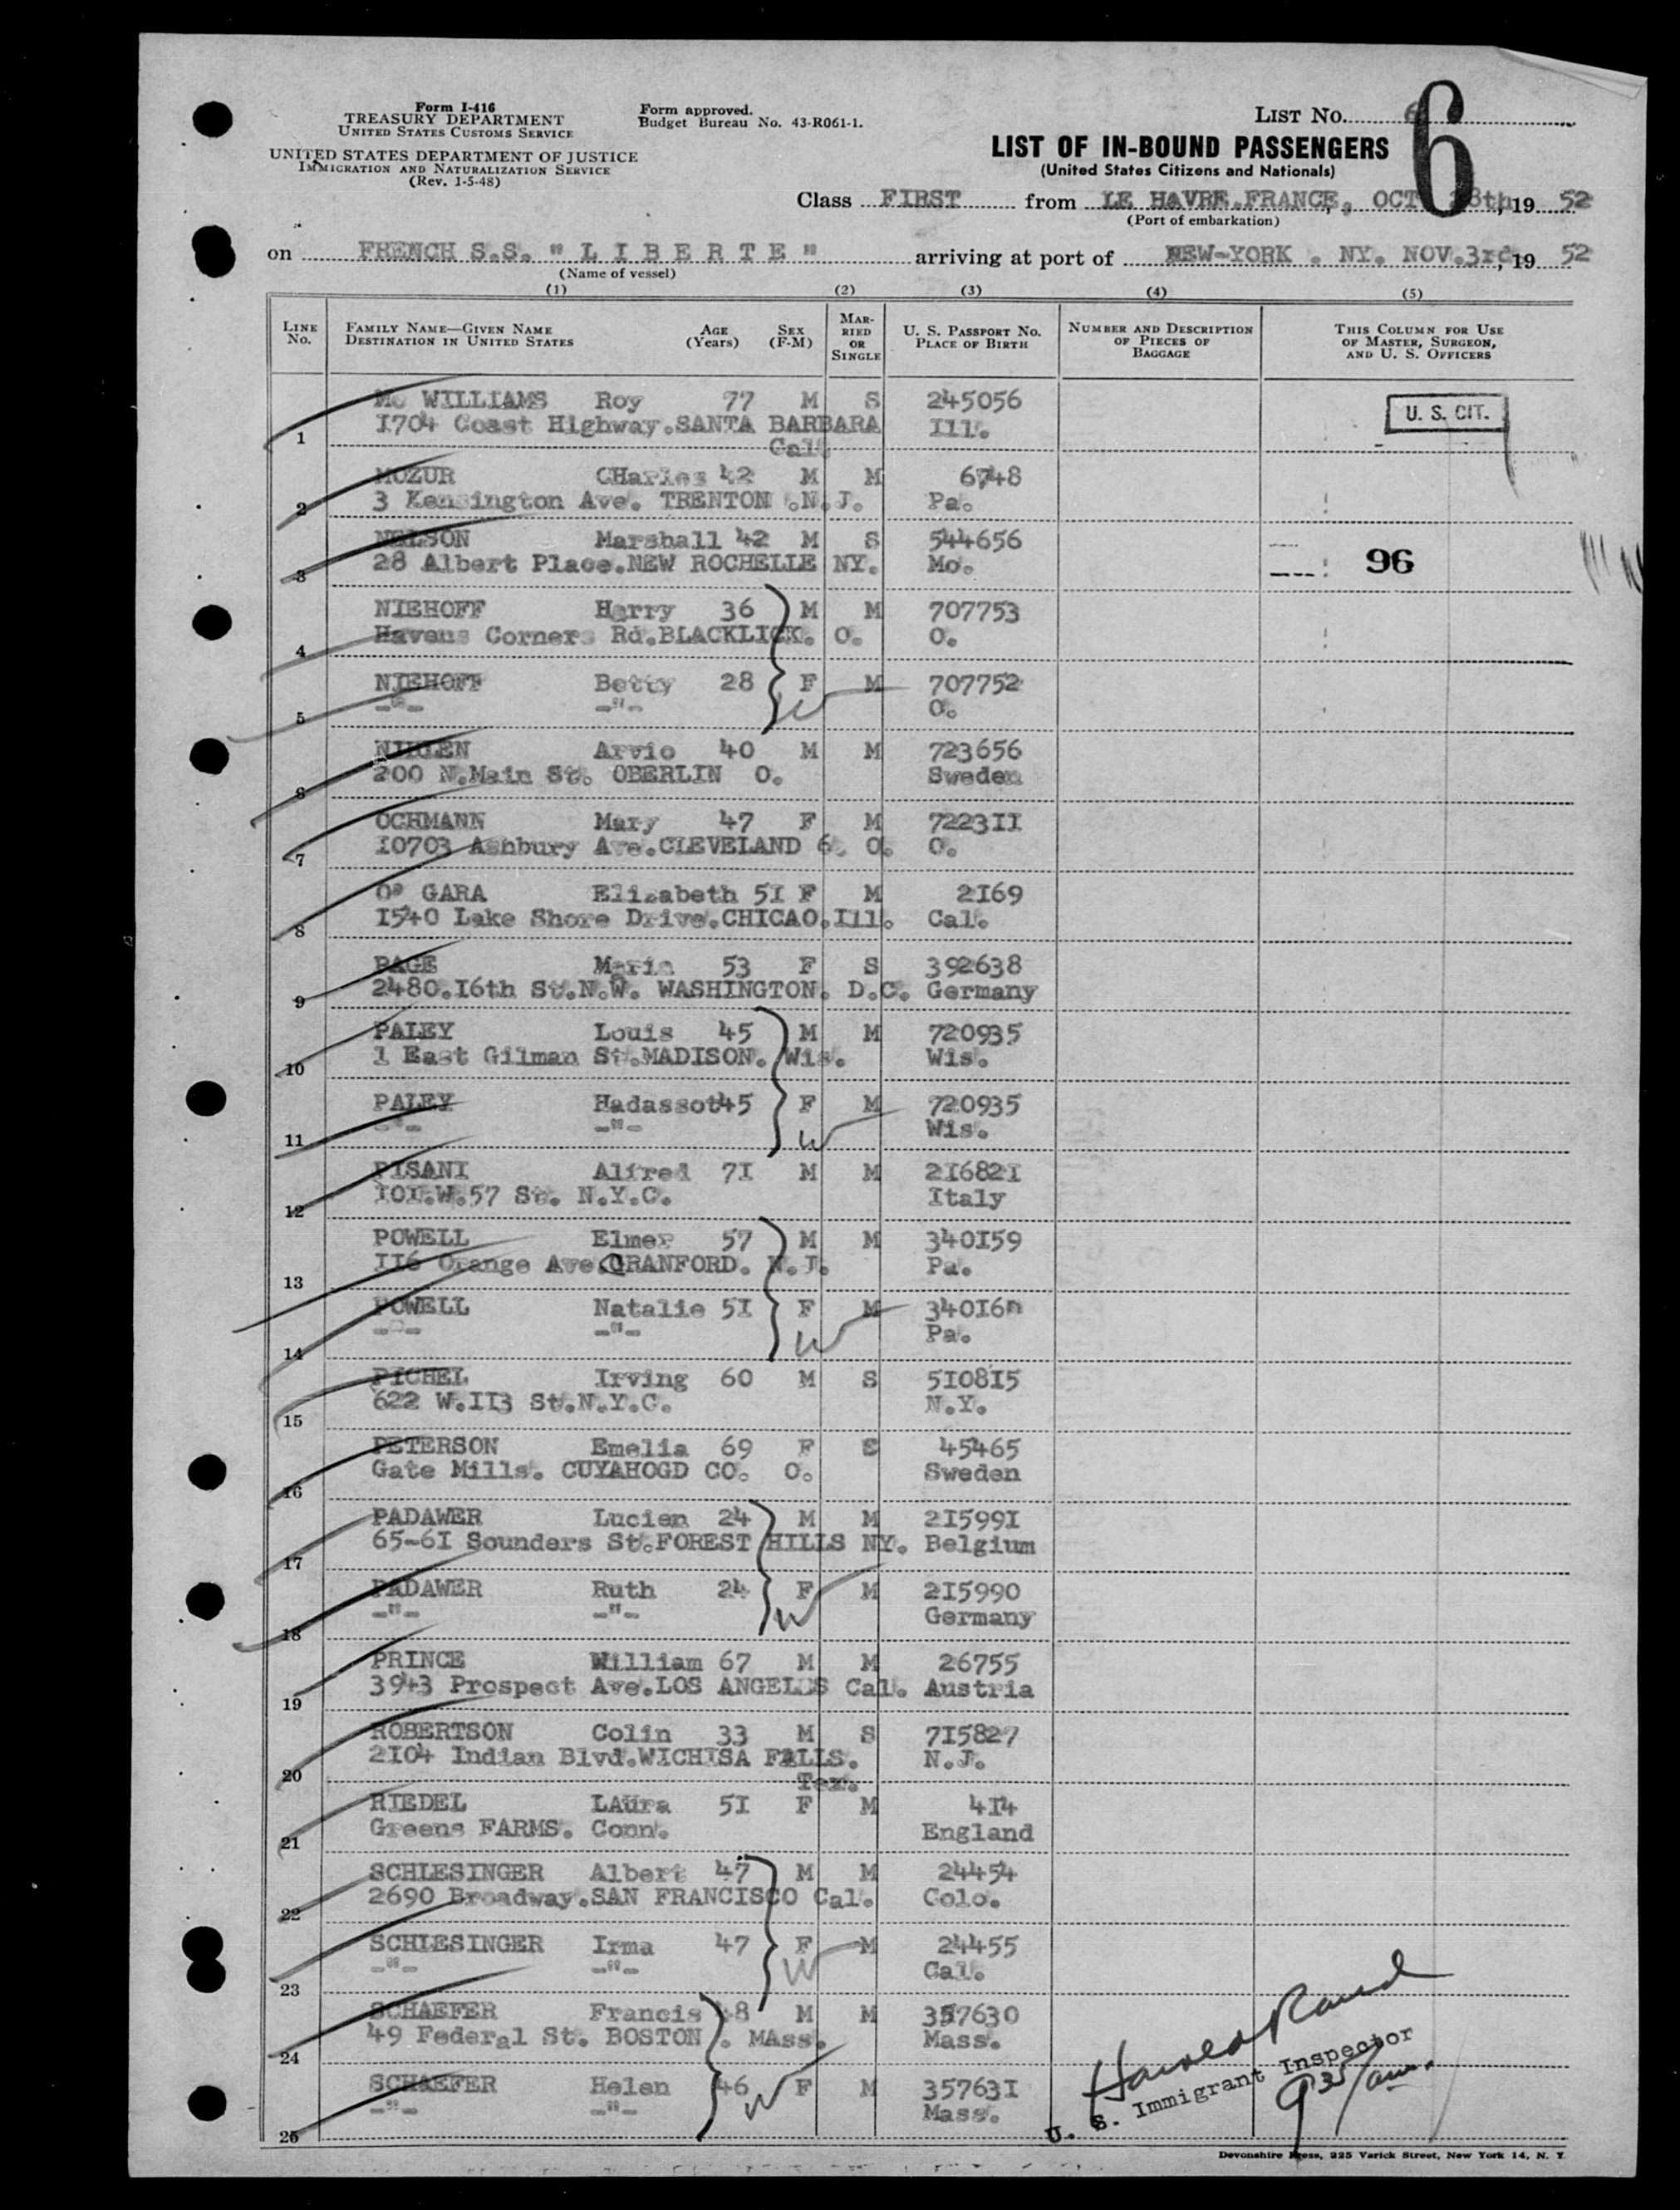 Form I-416
TREASURY DEPARTMENT
UNITED STATES CUSTOMS SERVICE
UNITED STATES DEPARTMENT OF JUSTICE
IMMIGRATION AND NATURALIZATION SERVICE
(Rev. 1-5-48)
Form approved.
Budget Bureau No. 43-R061-1.
LIST No. 6
LIST OF IN-BOUND PASSENGERS
(United States Citizens and Nationals)
Class FIRST from LE HAVRE.FRANCE, OCT 28th, 19 52
(Port of embarkation)
on FRENCH S.S. "L I B E R T E" arriving at port of NEW-YORK . NY. NOV.3rd, 19 52
(Name of vessel)
(1) (2) (3) (4) (5)
LINE No. FAMILY NAME—GIVEN NAME DESTINATION IN UNITED STATES AGE (Years) SEX (F-M) MARRIED OR SINGLE U. S. PASSPORT No. PLACE OF BIRTH NUMBER AND DESCRIPTION OF PIECES OF BAGGAGE THIS COLUMN FOR USE OF MASTER, SURGEON, AND U. S. OFFICERS
Mc WILLIAMS Roy 77 M S 245056
U. S. CIT.
1 I704 Coast Highway.SANTA BARBARA Ill.
Cal.
MOZUR CHarles 42 M M 6748
2 3 Kensington Ave. TRENTON .N.J. Pa.
NELSON Marshall 42 M S 544656
3 28 Albert Place.NEW ROCHELLE NY. Mo.
96
NIEHOFF Harry 36 M M 707753
4 Havens Corners Rd.BLACKLICK. O. O.
NIEHOFF Betty 28 F M 707752
5 -"- -"- W O.
NIHLEN Arvio 40 M M 723656
6 200 N.Main St. OBERLIN O. Sweden
OCHMANN Mary 47 F M 7223II
7 I0703 Ashbury Ave.CLEVELAND 6. O. O.
O' GARA Elizabeth 5I F M 2I69
8 I540 Lake Shore Drive.CHICAO.Ill. Cal.
PAGE Maria 53 F S 392638
9 2480.I6th St.N.W. WASHINGTON. D.C. Germany
PALEY Louis 45 M M 720935
10 1 East Gilman St.MADISON. Wis. Wis.
PALEY Hadassot45 F M 720935
11 -"- -"- W Wis.
PISANI Alfred 7I M M 2I682I
12 I0I.W.57 St. N.Y.C. Italy
POWELL Elmer 57 M M 340I59
13 II6 Orange Ave.CRANFORD. N.J. Pa.
POWELL Natalie 5I F M 340I6n
14 -"- -"- W Pa.
PICHEL Irving 60 M S 5I08I5
15 622 W.II3 St.N.Y.C. N.Y.
PETERSON Emelia 69 F S 45465
16 Gate Mills. CUYAHOGD CO. O. Sweden
PADAWER Lucien 24 M M 2I599I
17 65-6I Sounders St.FOREST HILLS NY. Belgium
PADAWER Ruth 24 F M 2I5990
18 -"- -"- W Germany
PRINCE William 67 M M 26755
19 3943 Prospect Ave.LOS ANGELES Cal. Austria
ROBERTSON Colin 33 M S 7I5827
20 2I04 Indian Blvd.WICHISA FALLS. N.J.
Tex.
RIEDEL LAura 5I F M 4I4
21 Greens FARMS. Conn. England
SCHLESINGER Albert 47 M M 24454
22 2690 Broadway.SAN FRANCISCO Cal. Colo.
SCHLESINGER Irma 47 F M 24455
23 -"- -"- W Cal.
SCHAEFER Francis 48 M M 357630
24 49 Federal St. BOSTON . MAss. Mass.
SCHAEFER Helen 46 W F M 35763I
25 -"- -"- Mass.
Harold Rand
U. S. Immigrant Inspector
9 35/am.
Devonshire Press, 225 Varick Street, New York 14, N. Y.